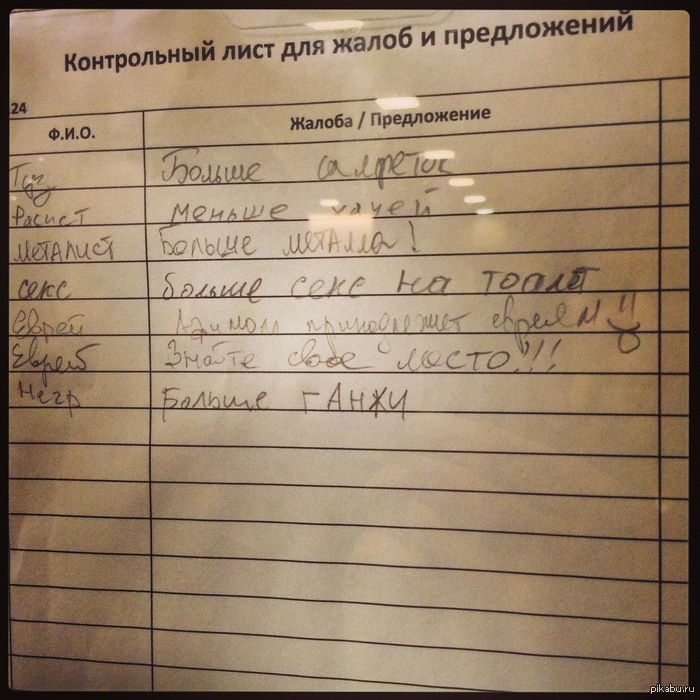 Контрольный лист для жалоб и предложений
.24
Ф.И.О. Жалоба / Предложение
Больше салфеток
Расист меньше хачей
металист Больше металла!
секс больше секс на тоалет
Еврей молл принодлежит евреям!!
Еврей Знайте свое место!!!
Негр Больше ГАНЖИ
pikabu.ru